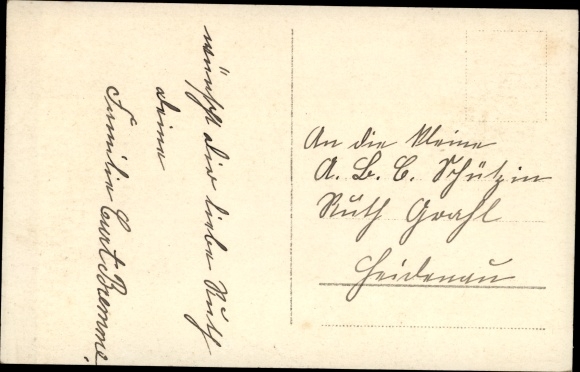 wünscht Dir liebe Ruth
Deine
Familie Curt Bremme.
An die kleine
A. B. C. Schützin
Ruth Grahl
Heidenau